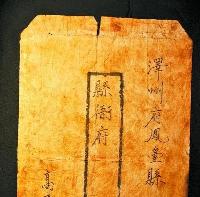 澤州府鳳臺縣
縣衙府
高